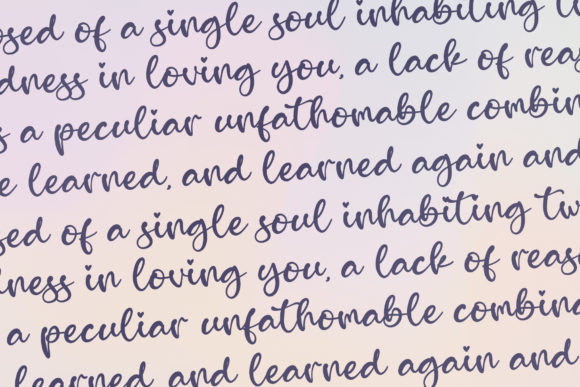 osed of a single soul inhabiting t
dness in loving you, a lack of reas
s a peculiar unfathomable combin
e learned, and learned again and
sed of a single soul inhabiting tw
dness in loving you, a lack of reaso
a peculiar unfathomable combina
learned, and learned again and